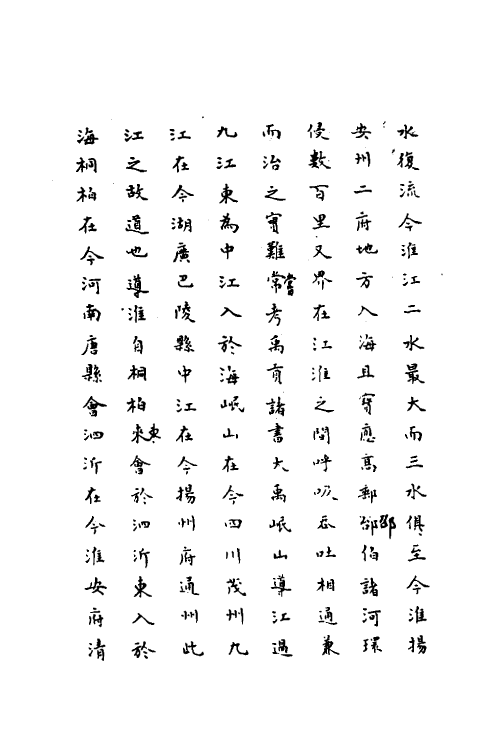 水復流今淮江二水最大而三水俱至今淮揚
安州二府地方入海且寶應髙郵邵伯諸河環
侵數百里又界在江淮之間呼吸吞吐相通兼
而治之實難常當考禹貢諸書大禹岷山導江過
九江東為中江入於海岷山在今四川茂州九
江在今湖廣巴陵縣中江在今揚州府通州此
江之故道也導淮自桐柏來東會於泗沂東入於
海桐柏在今河南唐縣會泗沂在今淮安府清